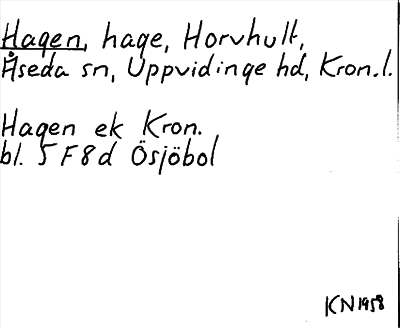 Hagen, hage, Horvhult,
Åseda sn, Uppvidinge hd, Kron.l.
Hagen ek Kron.
bl. 5 F 8 d Ösjöbol
KN 1958